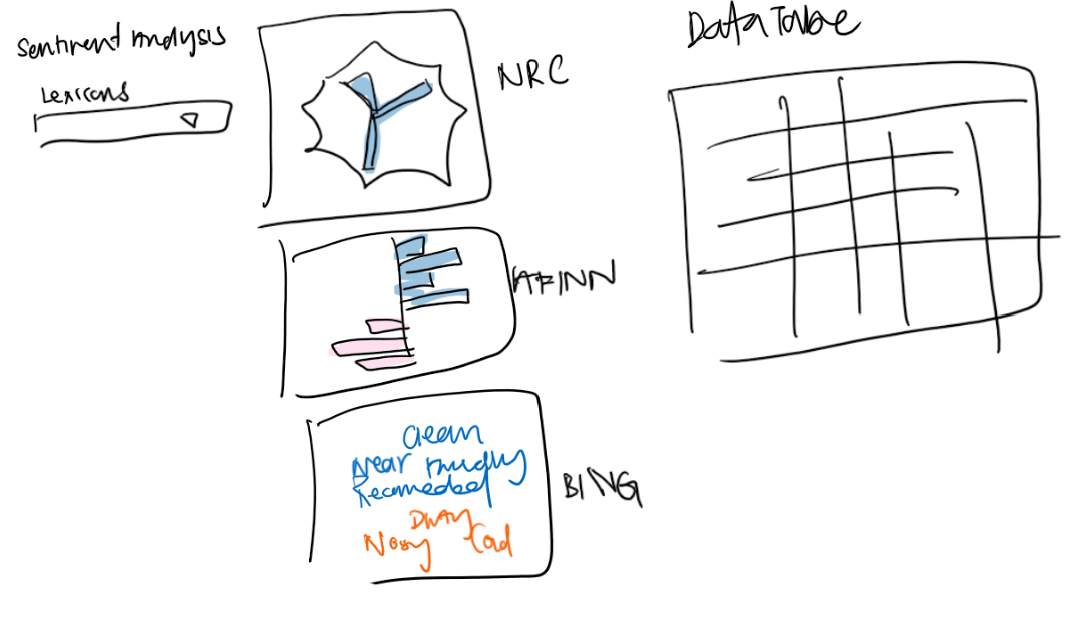 Sentiment Analysis
Lexicons
NRC
AFINN
Clean
Near Friendly
Recommended
Dirty
Noisy
BING
Data Table